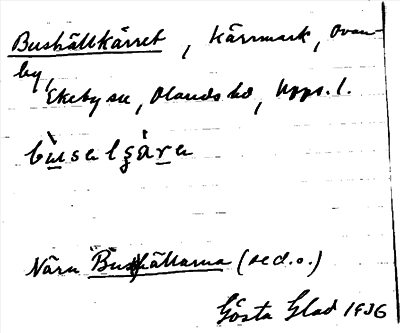 Bushällkärret, Kärrmark, Ovan-
by,
Ekeby sn, Olands hd, Upps. l.
bu̠salʂär̠a
Nära Bushällarna (se d.o.)
Gösta Glad 1936